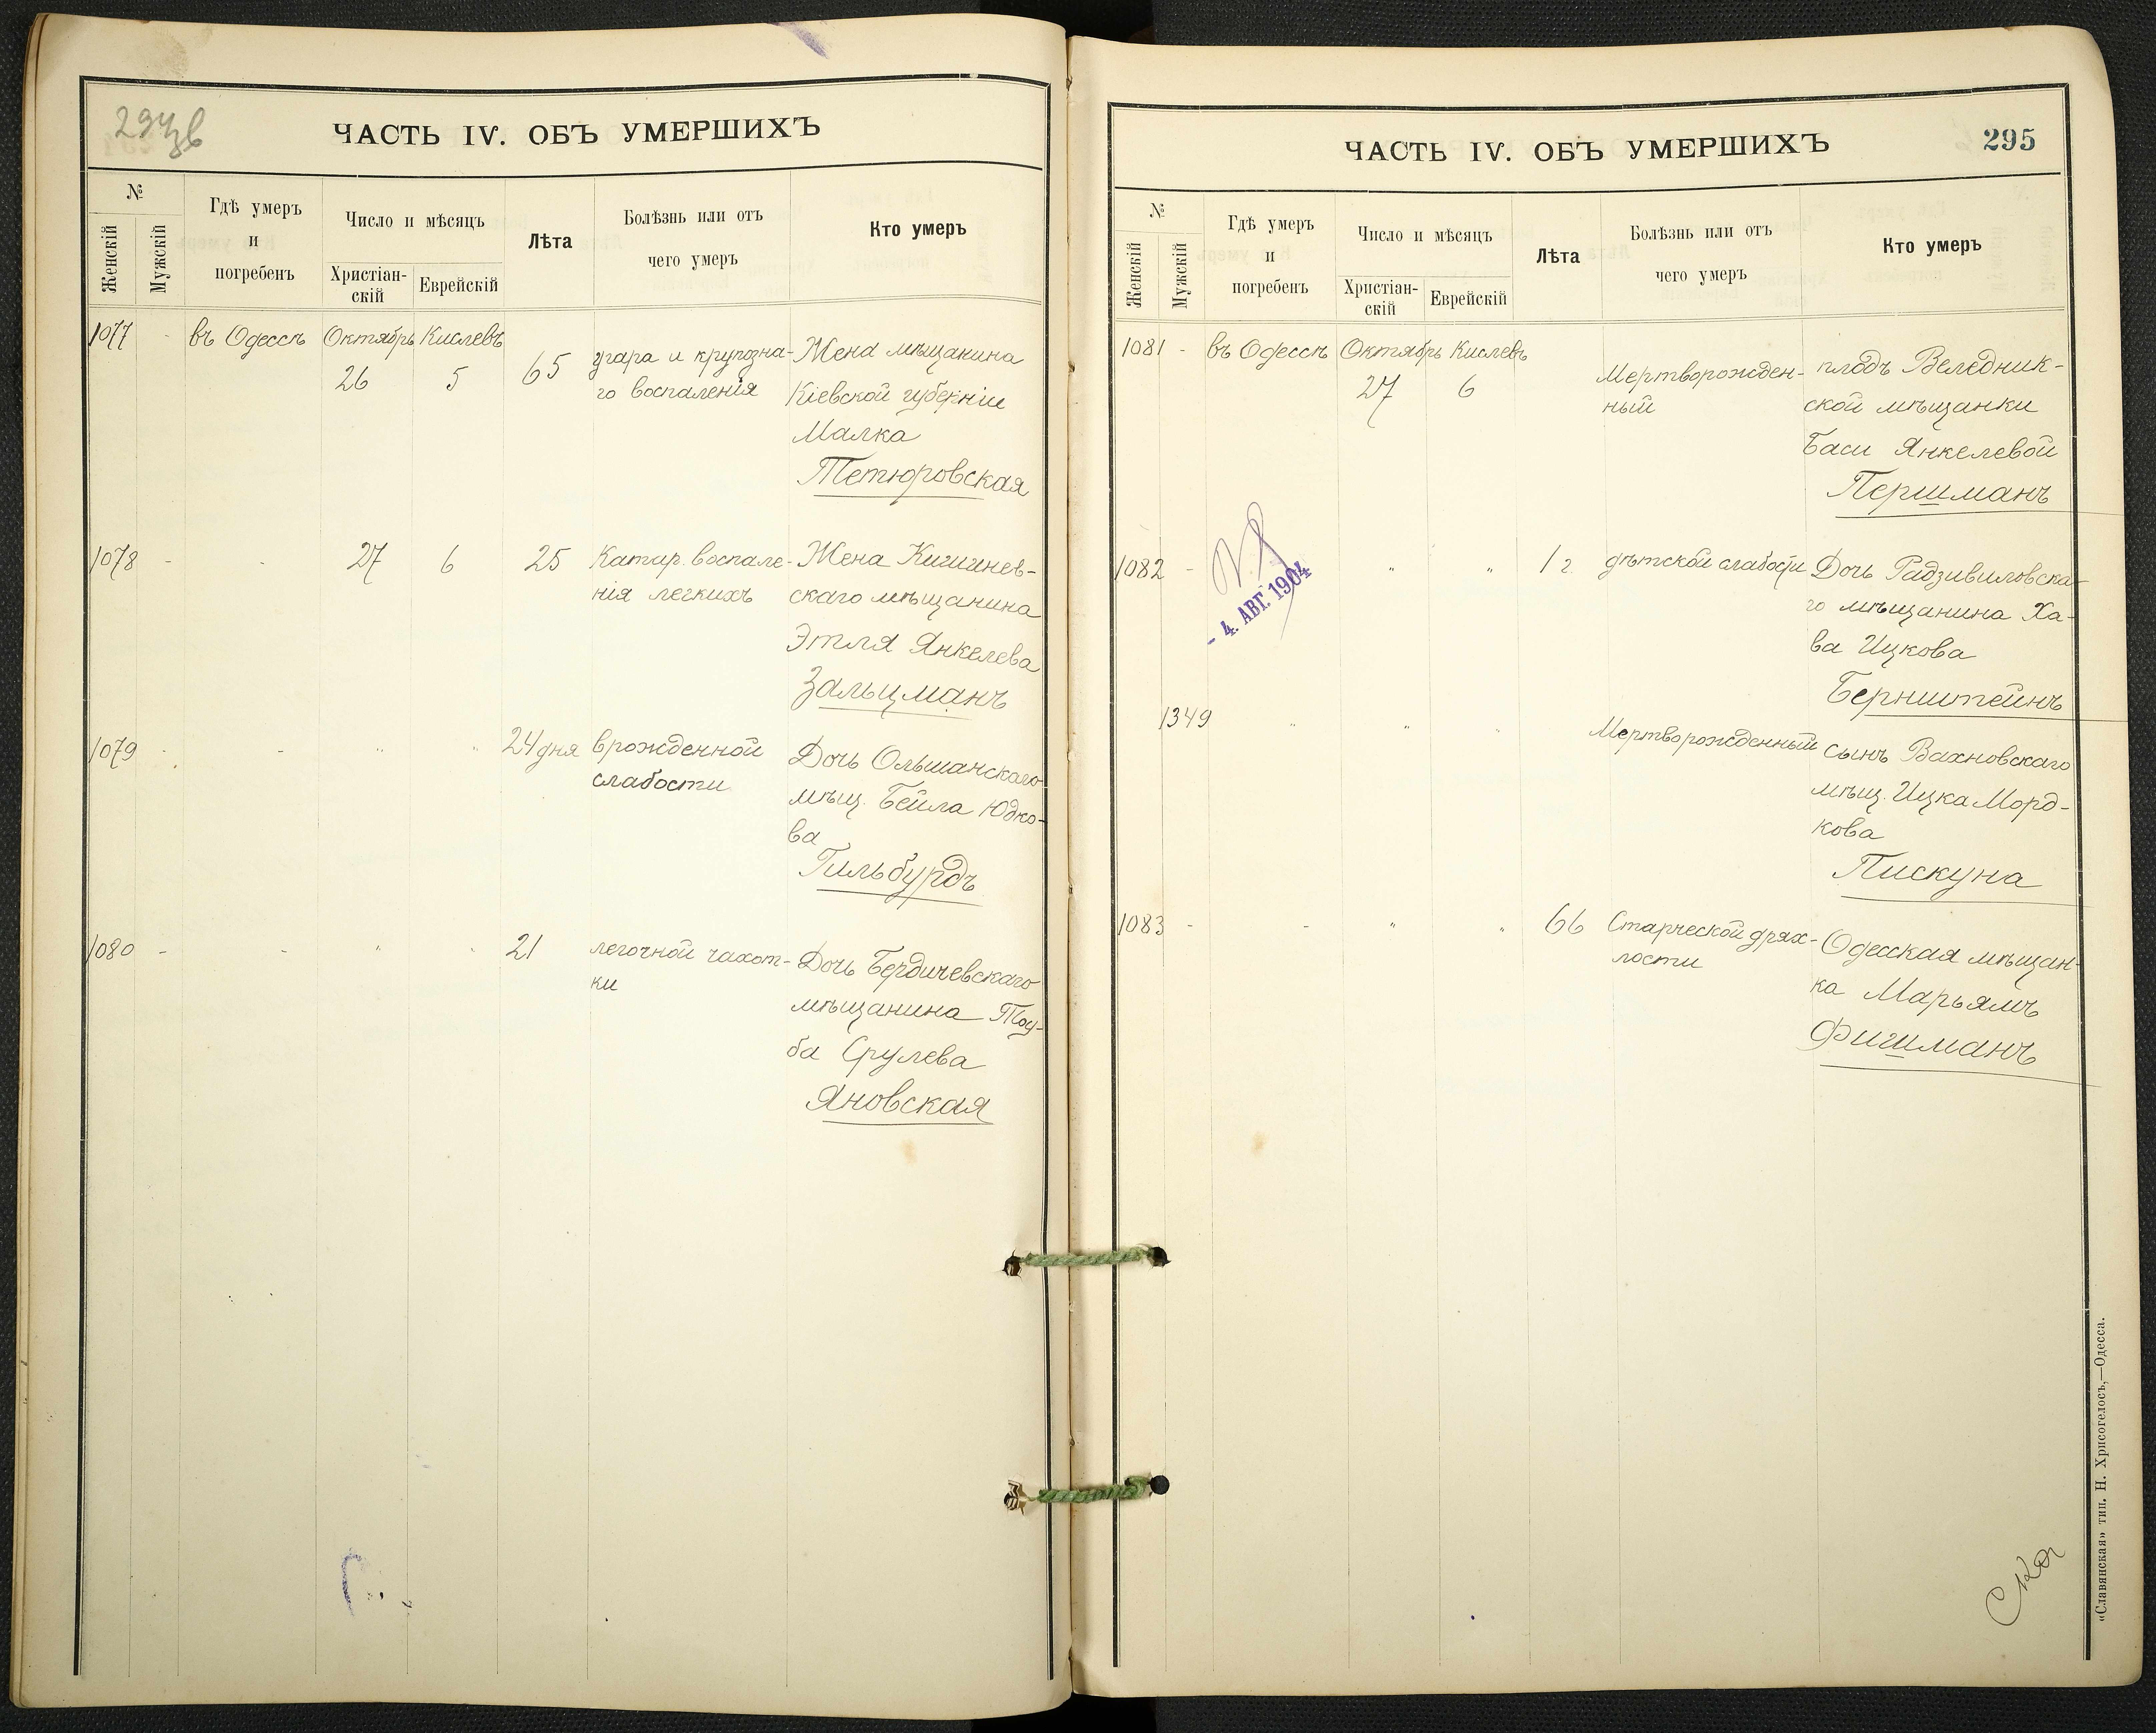 294 зв
ЧАСТЬ IV. ОБЪ УМЕРШИХЪ
№
Женскій
Мужскій
Гдѣ умеръ
и
погребенъ
Число и мѣсяцъ
Христіан-
скій
Еврейскій
Лѣта
Болѣзнь или отъ
чего умеръ
Кто умеръ
1077 - въ Одессѣ Октябрь Кислевъ
26 5 65 угара и крупозна- Жена мѣщанина
го воспаленія Кіевской губерніи
Малка
Тетюровская
1078 - - 27 6 25 Катар. воспале- Жена Кишинев-
нія легкихъ скаго мѣщанина
Этля Янкелева
Зальцманъ
1079 - - " " 24 дня врожденной Дочь Ольшанскаго
слабости мѣщ. Бейла Юдко-
ва
Гильбурдъ
1080 - - " " 21 легочной чахот- Дочь Бердичевскаго
ки мѣщанина Тау-
ба Срулева
Яновская
ЧАСТЬ IV. ОБЪ УМЕРШИХЪ
295
№
Женскій
Мужскій
Гдѣ умеръ
и
погребенъ
Число и мѣсяцъ
Христіан-
скій
Еврейскій
Лѣта
Болѣзнь или отъ
чего умеръ
Кто умеръ
1081 - въ Одессѣ Октябрь Кислевъ
27 6 Мертворожден- плодъ Веледник-
ный ской мѣщанки
Баси Янкелевой
Першманъ
1082 - " " 1 г. дѣтской слабости Дочь Радзивиловска-
го мѣщанина Ха-
ва Ицкова
Бернштейнъ
- 4. АВГ. 1904
1349 " " " Мертворожденный сынъ Вахновскаго
мѣщ. Ицка Морд-
кова
Пискуна
1083 - - " " 66 Старческой дрях- Одесская мѣщан-
лости ка Марьямъ
Фишманъ
«Славянская» тип. Н. Хрисогелосъ,—Одесса.